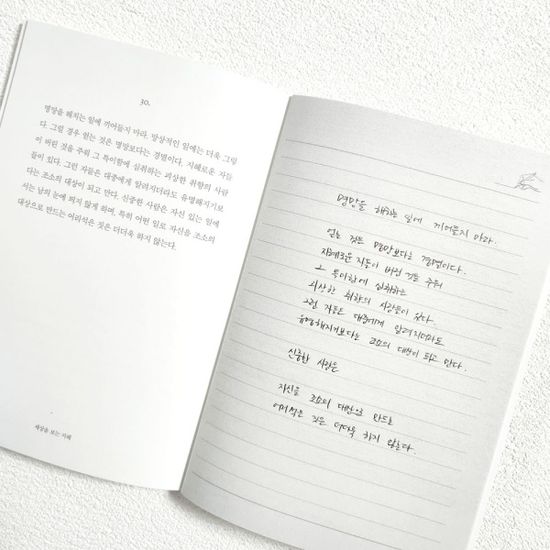 30.
명망을 해치는 일에 끼어들지 마라. 망상적인 일에는 더욱 그렇
다. 그럴 경우 얻는 것은 명망보다는 경멸이다. 지혜로운 자들
이 버린 것을 주워 그 특이함에 심취하는 괴상한 취향의 사람
들이 있다. 그런 자들은 대중에게 알려지더라도 유명해지기보
다는 조소의 대상이 되고 만다. 신중한 사람은 자신 있는 일에
서는 남의 눈에 띄지 않게 하며, 특히 어떤 일로 자신을 조소의
대상으로 만드는 어리석은 짓은 더더욱 하지 않는다.
세상을 보는 지혜
명망을 해치는 일에 끼어들지 마라.
얻는 것은 명망보다는 경멸이다.
지혜로운 자들이 버린 것을 주워
그 특이함에 심취하는
괴상한 취향의 사람들이 있다.
그런 자들은 대중에게 알려지더라도
유명해지기보다는 조소의 대상이 되고 만다.
신중한 사람은
자신을 조소의 대상으로 만드는
어리석은 짓은 더더욱 하지 않는다.